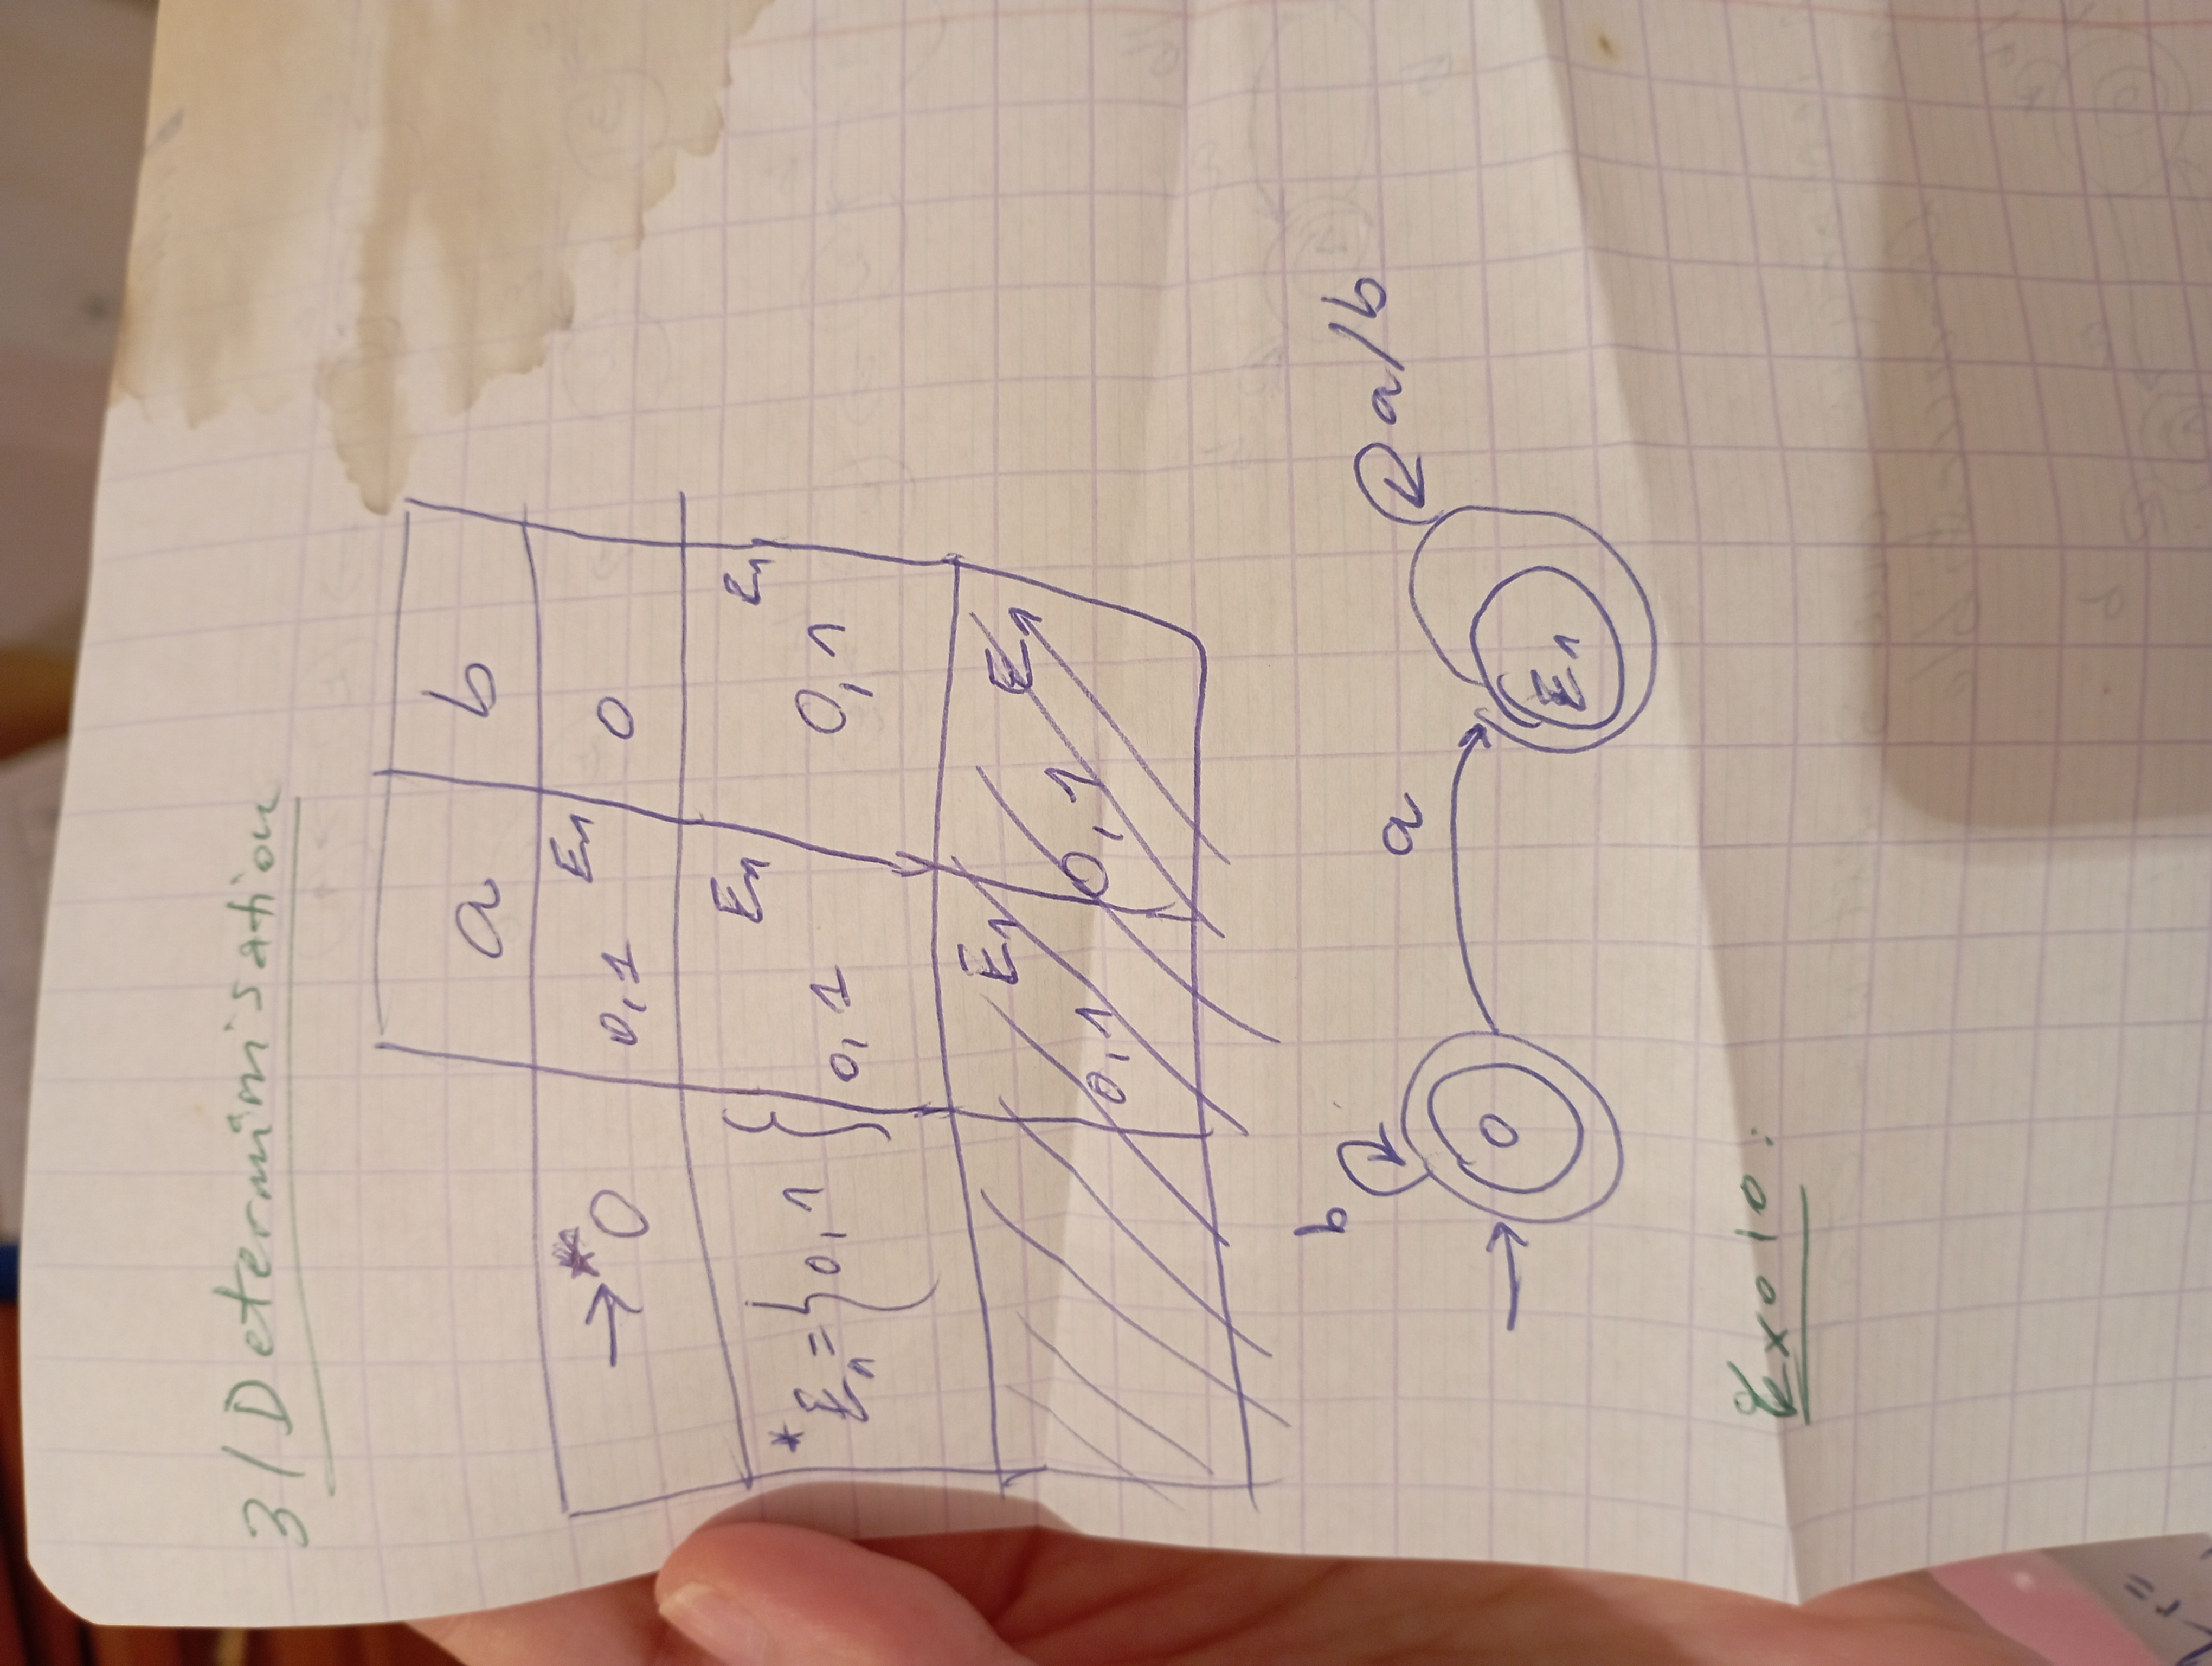 3/ Determinisation
a b
→ * 0 0,1 E1 0
* E1 = { 0,1 } 0,1 E1 0,1 E1
0,1 E1 0,1 E1
b a a/b
→ 0 E1
Exo 10 :
r =